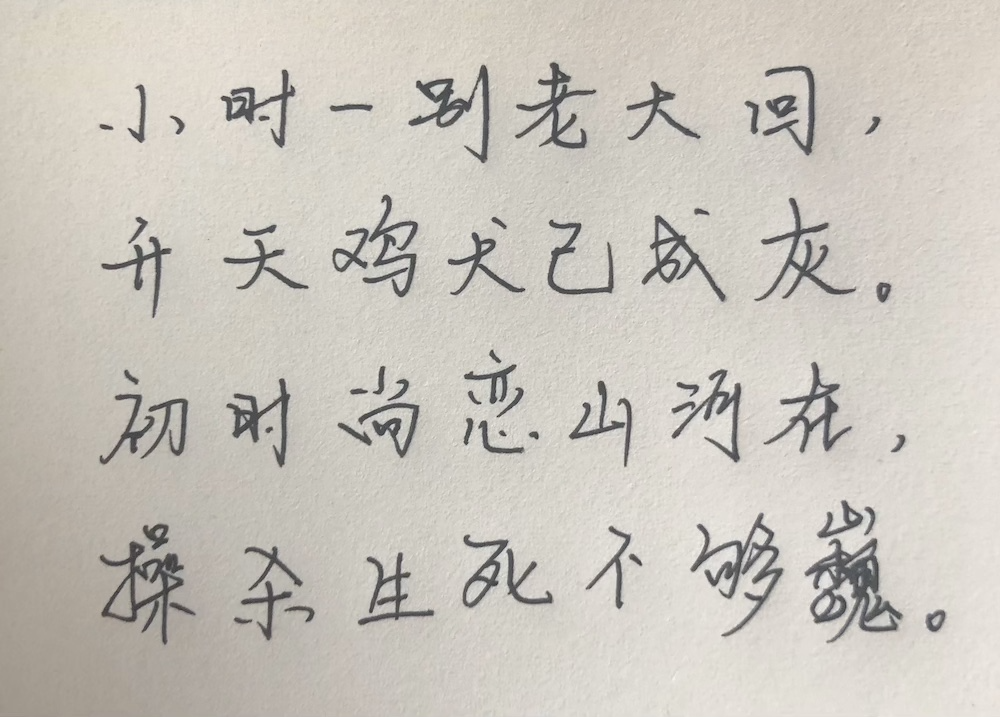 小时一别老大回，
升天鸡犬已成灰。
初时尚恋山河在，
操杀生死不够巍。